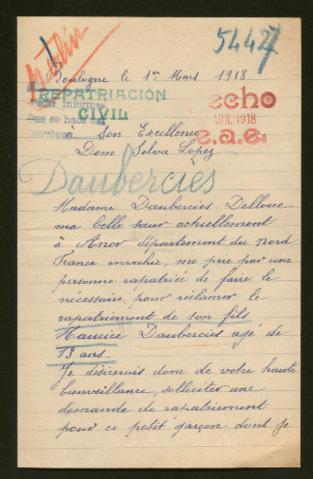 54427
Boulogne le 1er Mars 1918
REPATRIACIÓN
CIVIL
Pedir informes
que se hace
echo
ABR. 1918
e.a.e.
à Son Excellence
Dom Selva Lopez
Daubercies
Madame Daubercies Delloue
ma belle sœur actuellement
à Anor département du Nord
France envahie, me prie par une
personne rapatriée de faire le
nécessaire pour réclamer le
rapatriement de son fils
Maurice Daubercies agé de
13 ans.
Je désirerais donc de votre haute
bienveillance, solliciter une
demande de rapatriement
pour ce petit garçon dont je